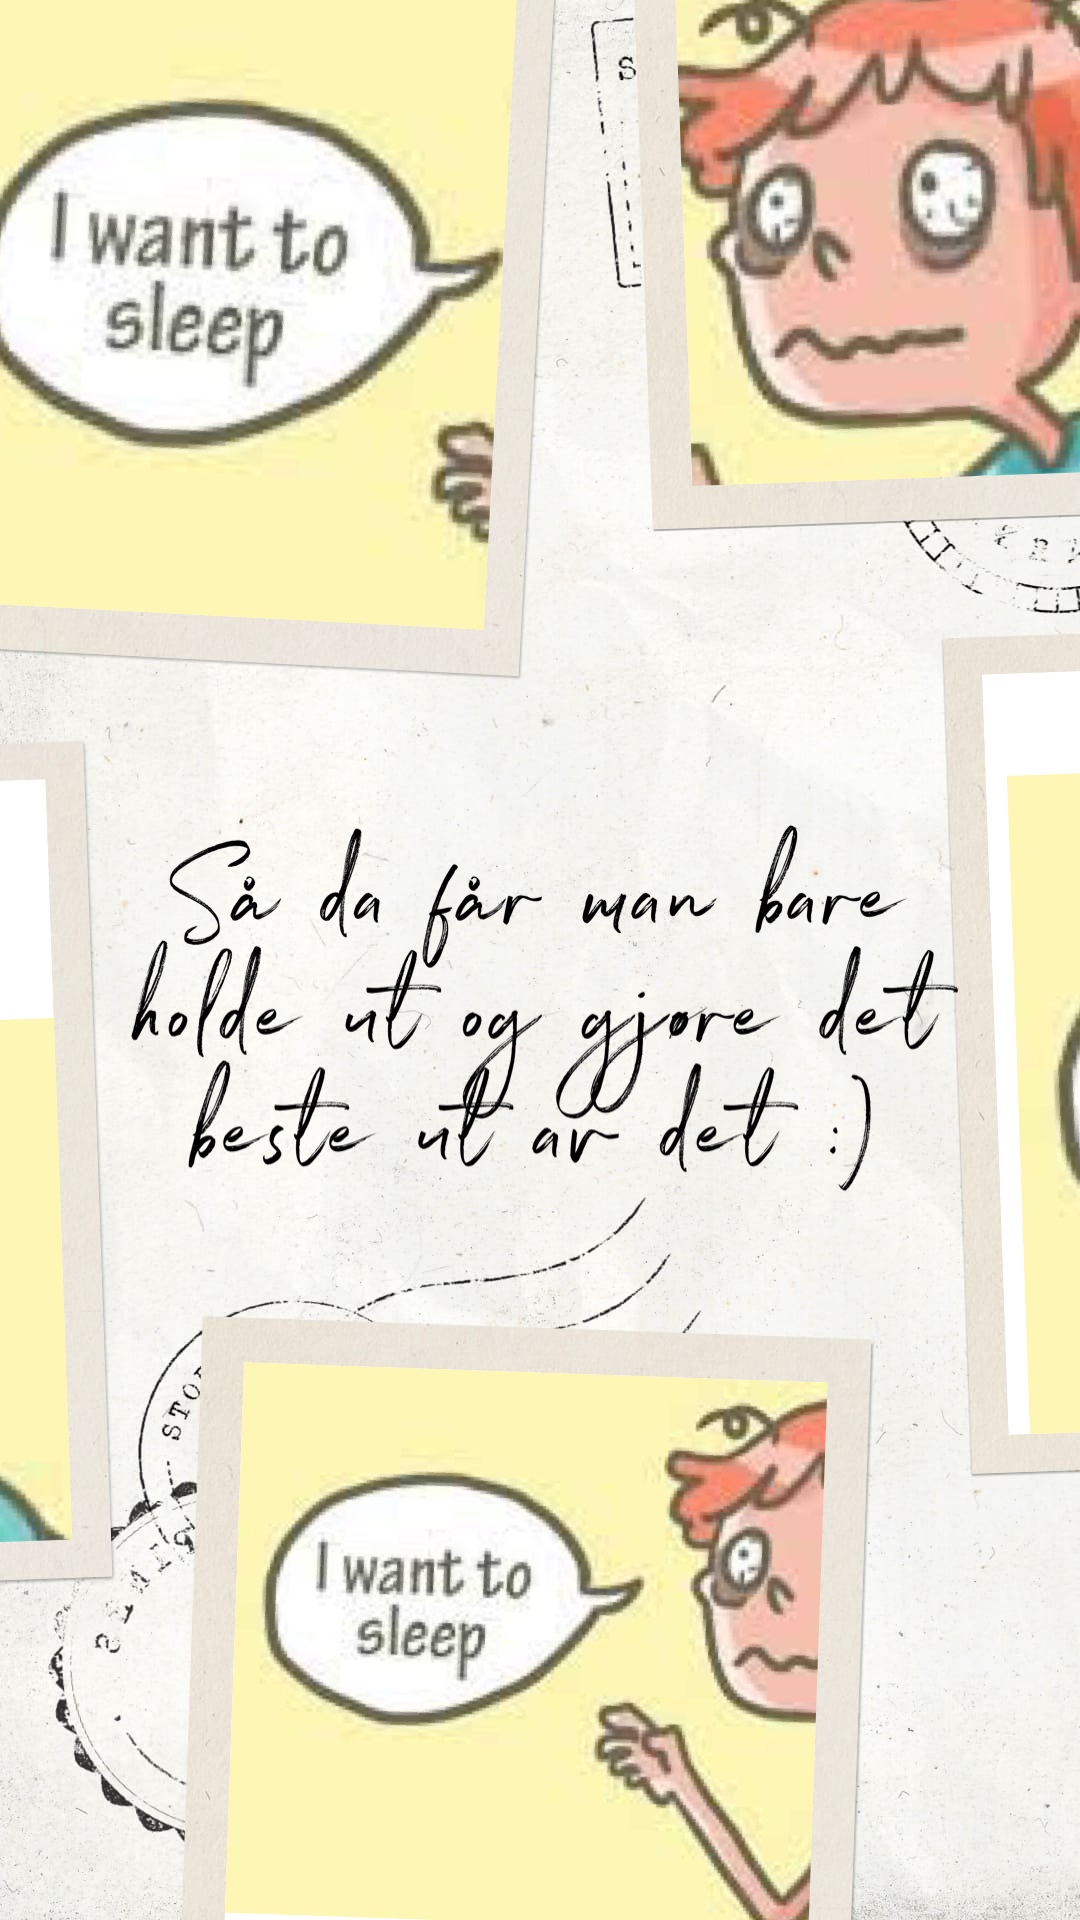 I want to
sleep
S
Så da får man bare
holde ut og gjøre det
beste ut av det :)
STO
I want to
sleep